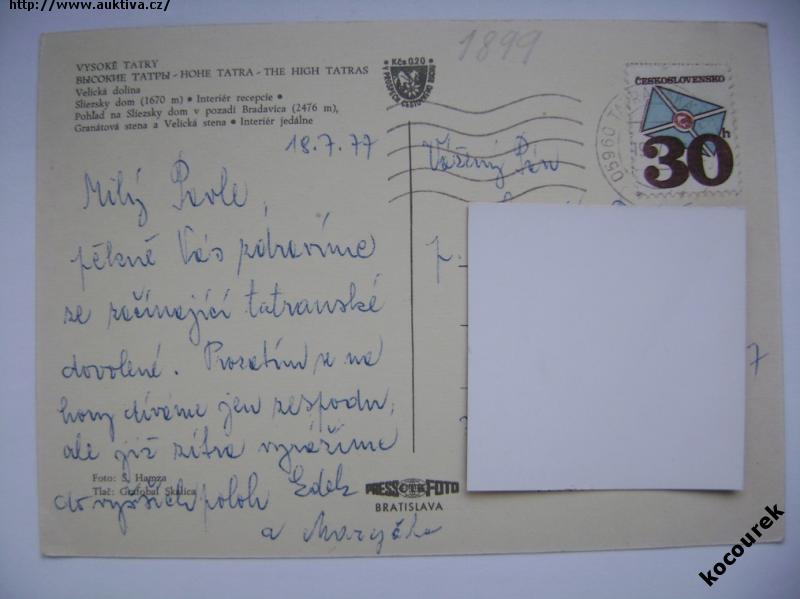 http://www.auktiva.cz/
VYSOKÉ TATRY
ВЫСОКИЕ ТАТРЫ - HOHE TATRA - THE HIGH TATRAS
Velická dolina
Sliezsky dom (1670 m) • Interiér recepcie •
Pohľad na Sliezsky dom v pozadí Bradavica (2476 m),
Granátová stena a Velická stena • Interiér jedálne
Kčs 0,20
1899
ČESKOSLOVENSKO
30h
05960 TA
18.7.77
Vážený Pán
Milý Pavle,
pěkně Vás zdravíme
ze začínající tatranské
dovolené. Prozatím se na
hory díváme jen zespodu,
ale již zítra vyrážíme
do vyšších poloh Edek
a Maryčka
p.
7
Foto: Š. Hamza
Tlač: Grafobal Skalica
PRESSFOTO
BRATISLAVA
kocourek